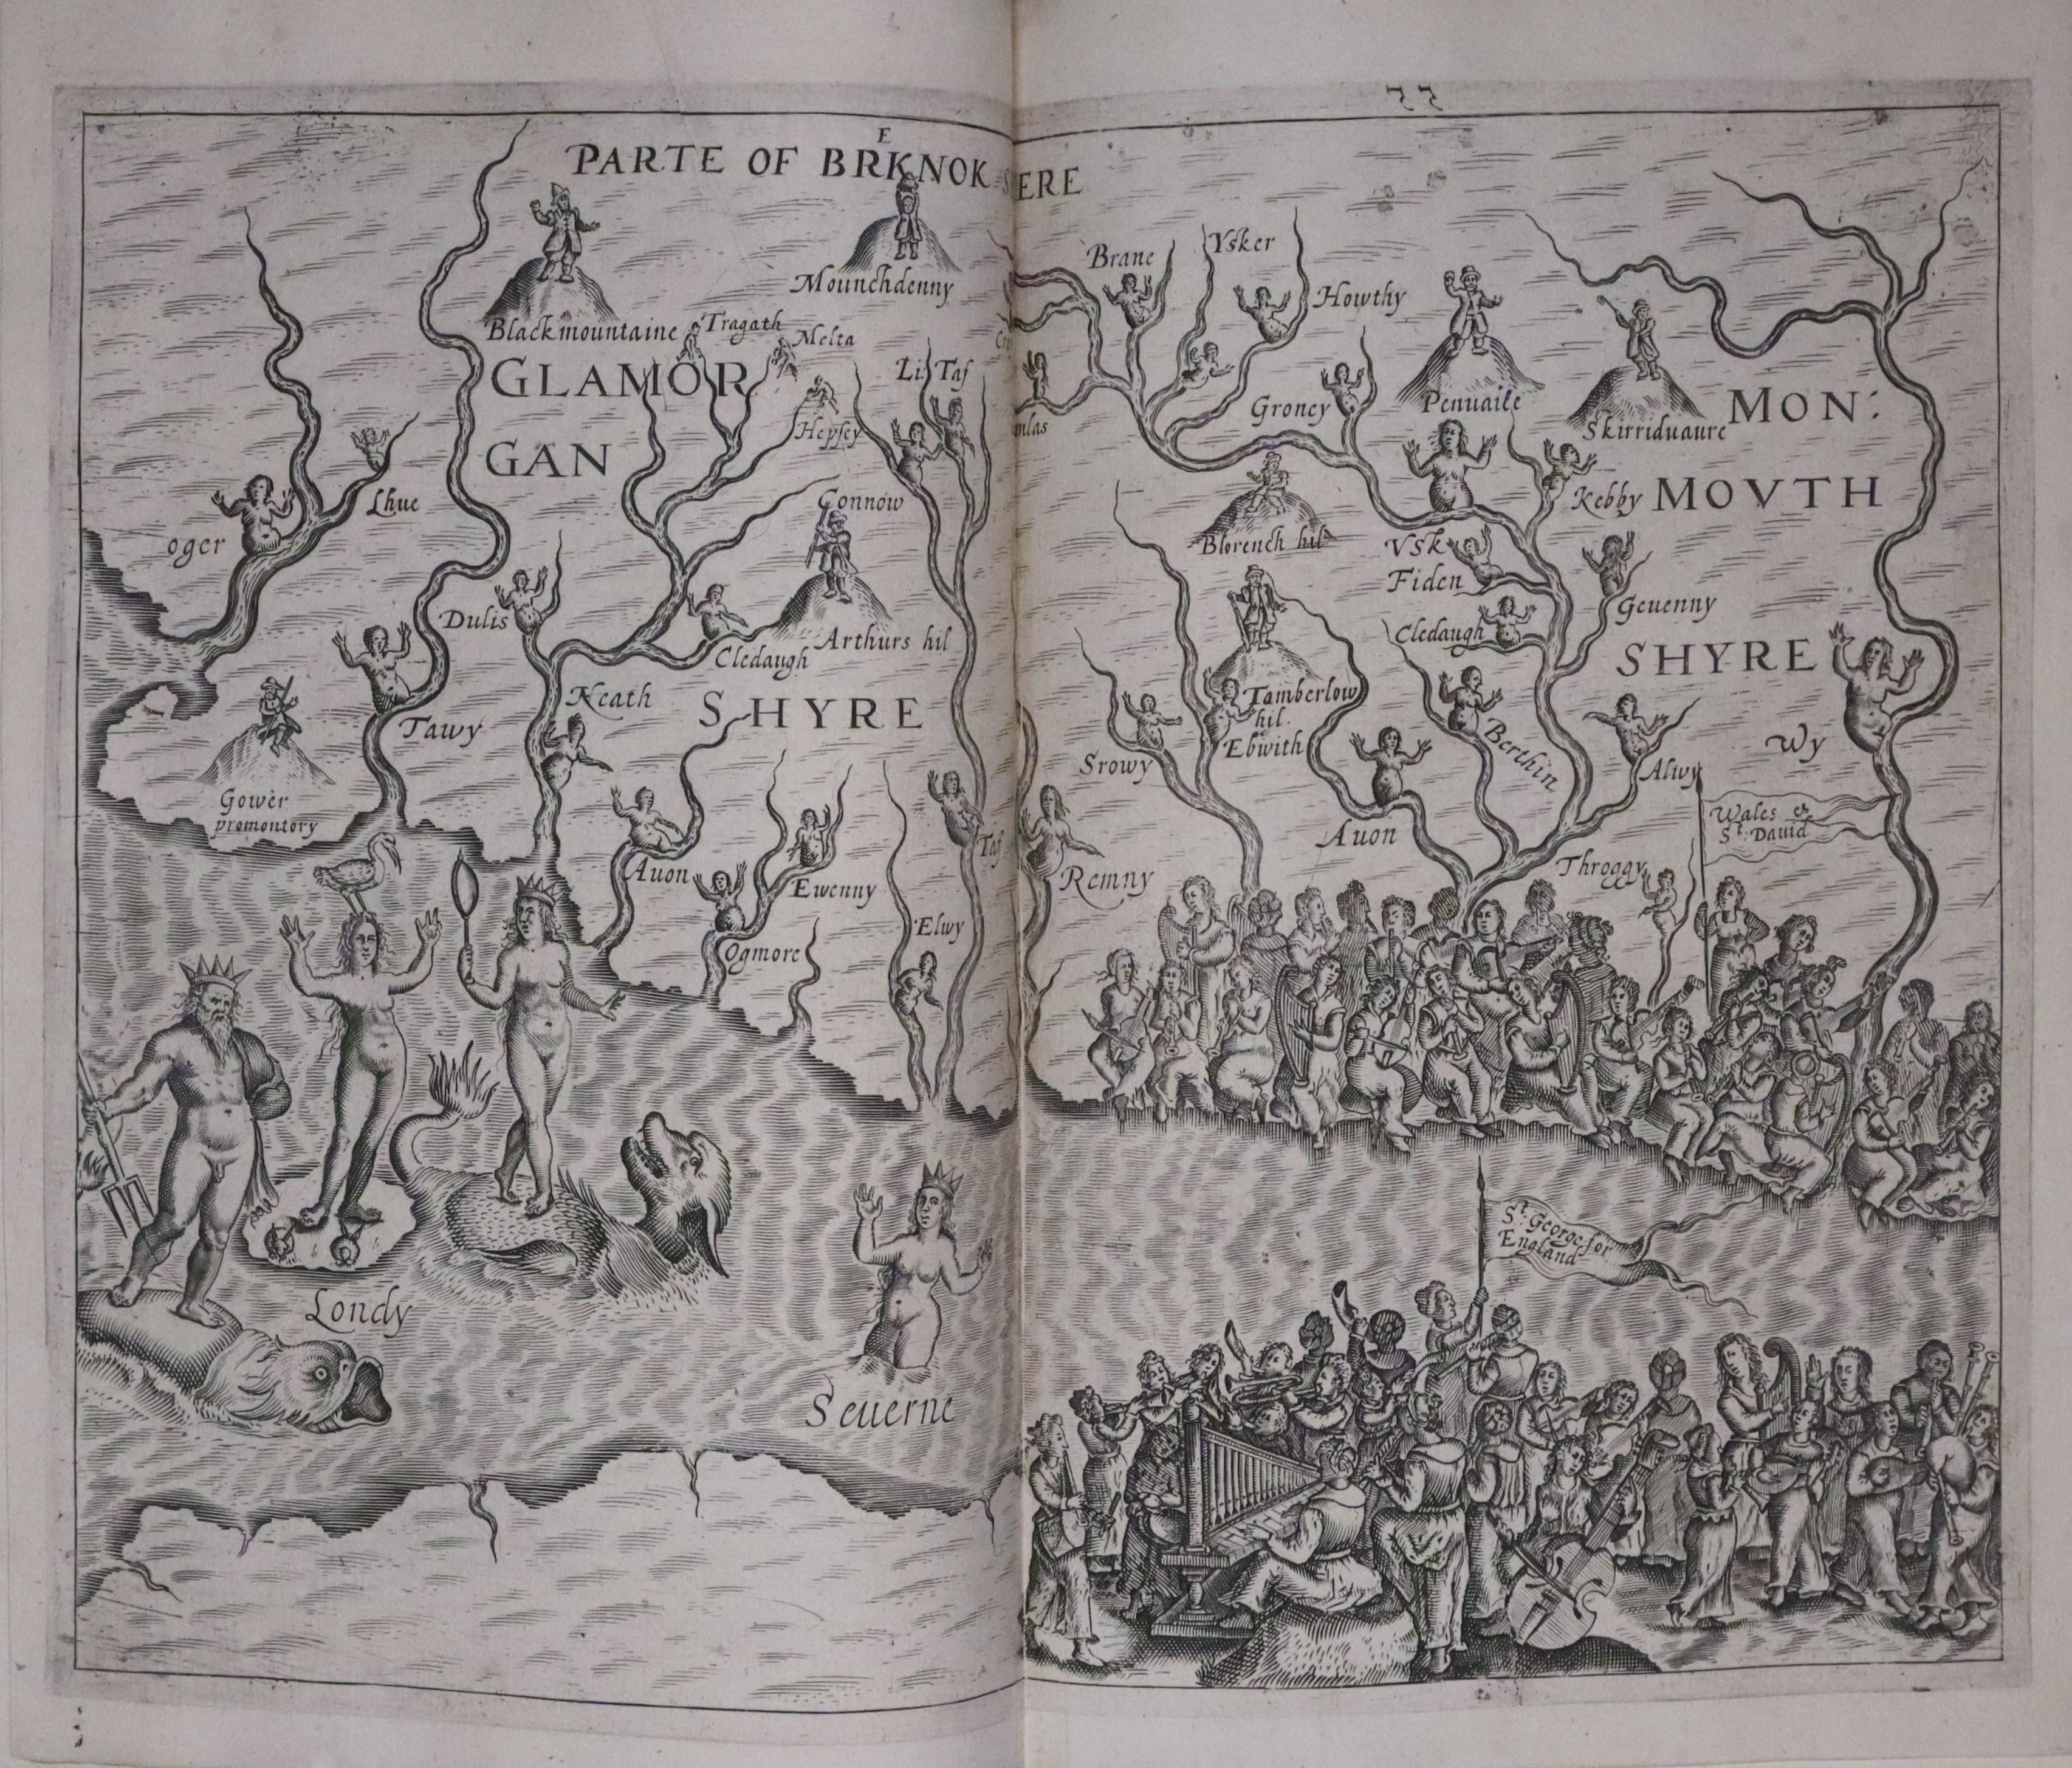 PARTE OF BRKNOK SERE
E
Mounchdenny
Blackmountaine
Tragath
Melta
GLAMOR
GAN
SHYRE
Hepsey
Li Taf
Lhue
oger
Connow
Dulis
Cledaugh
Arthurs hil
Neath
Tawy
Gower
promontory
Auon
Ewenny
Ogmore
Elwy
Taf
Londy
Seuerne
Brane
Ysker
Howthy
Groney
Penuaile
Skirriduaure
MON:
MOVTH
SHYRE
Kebby
Blorench hil
Vsk
Fiden
Geuenny
Cledaugh
Tamberlow
hil.
Ebwith
Srowy
Berthin
Alwy
Wy
Auon
Remny
Throggy
Wales &
St. Dauid
St. George for
England